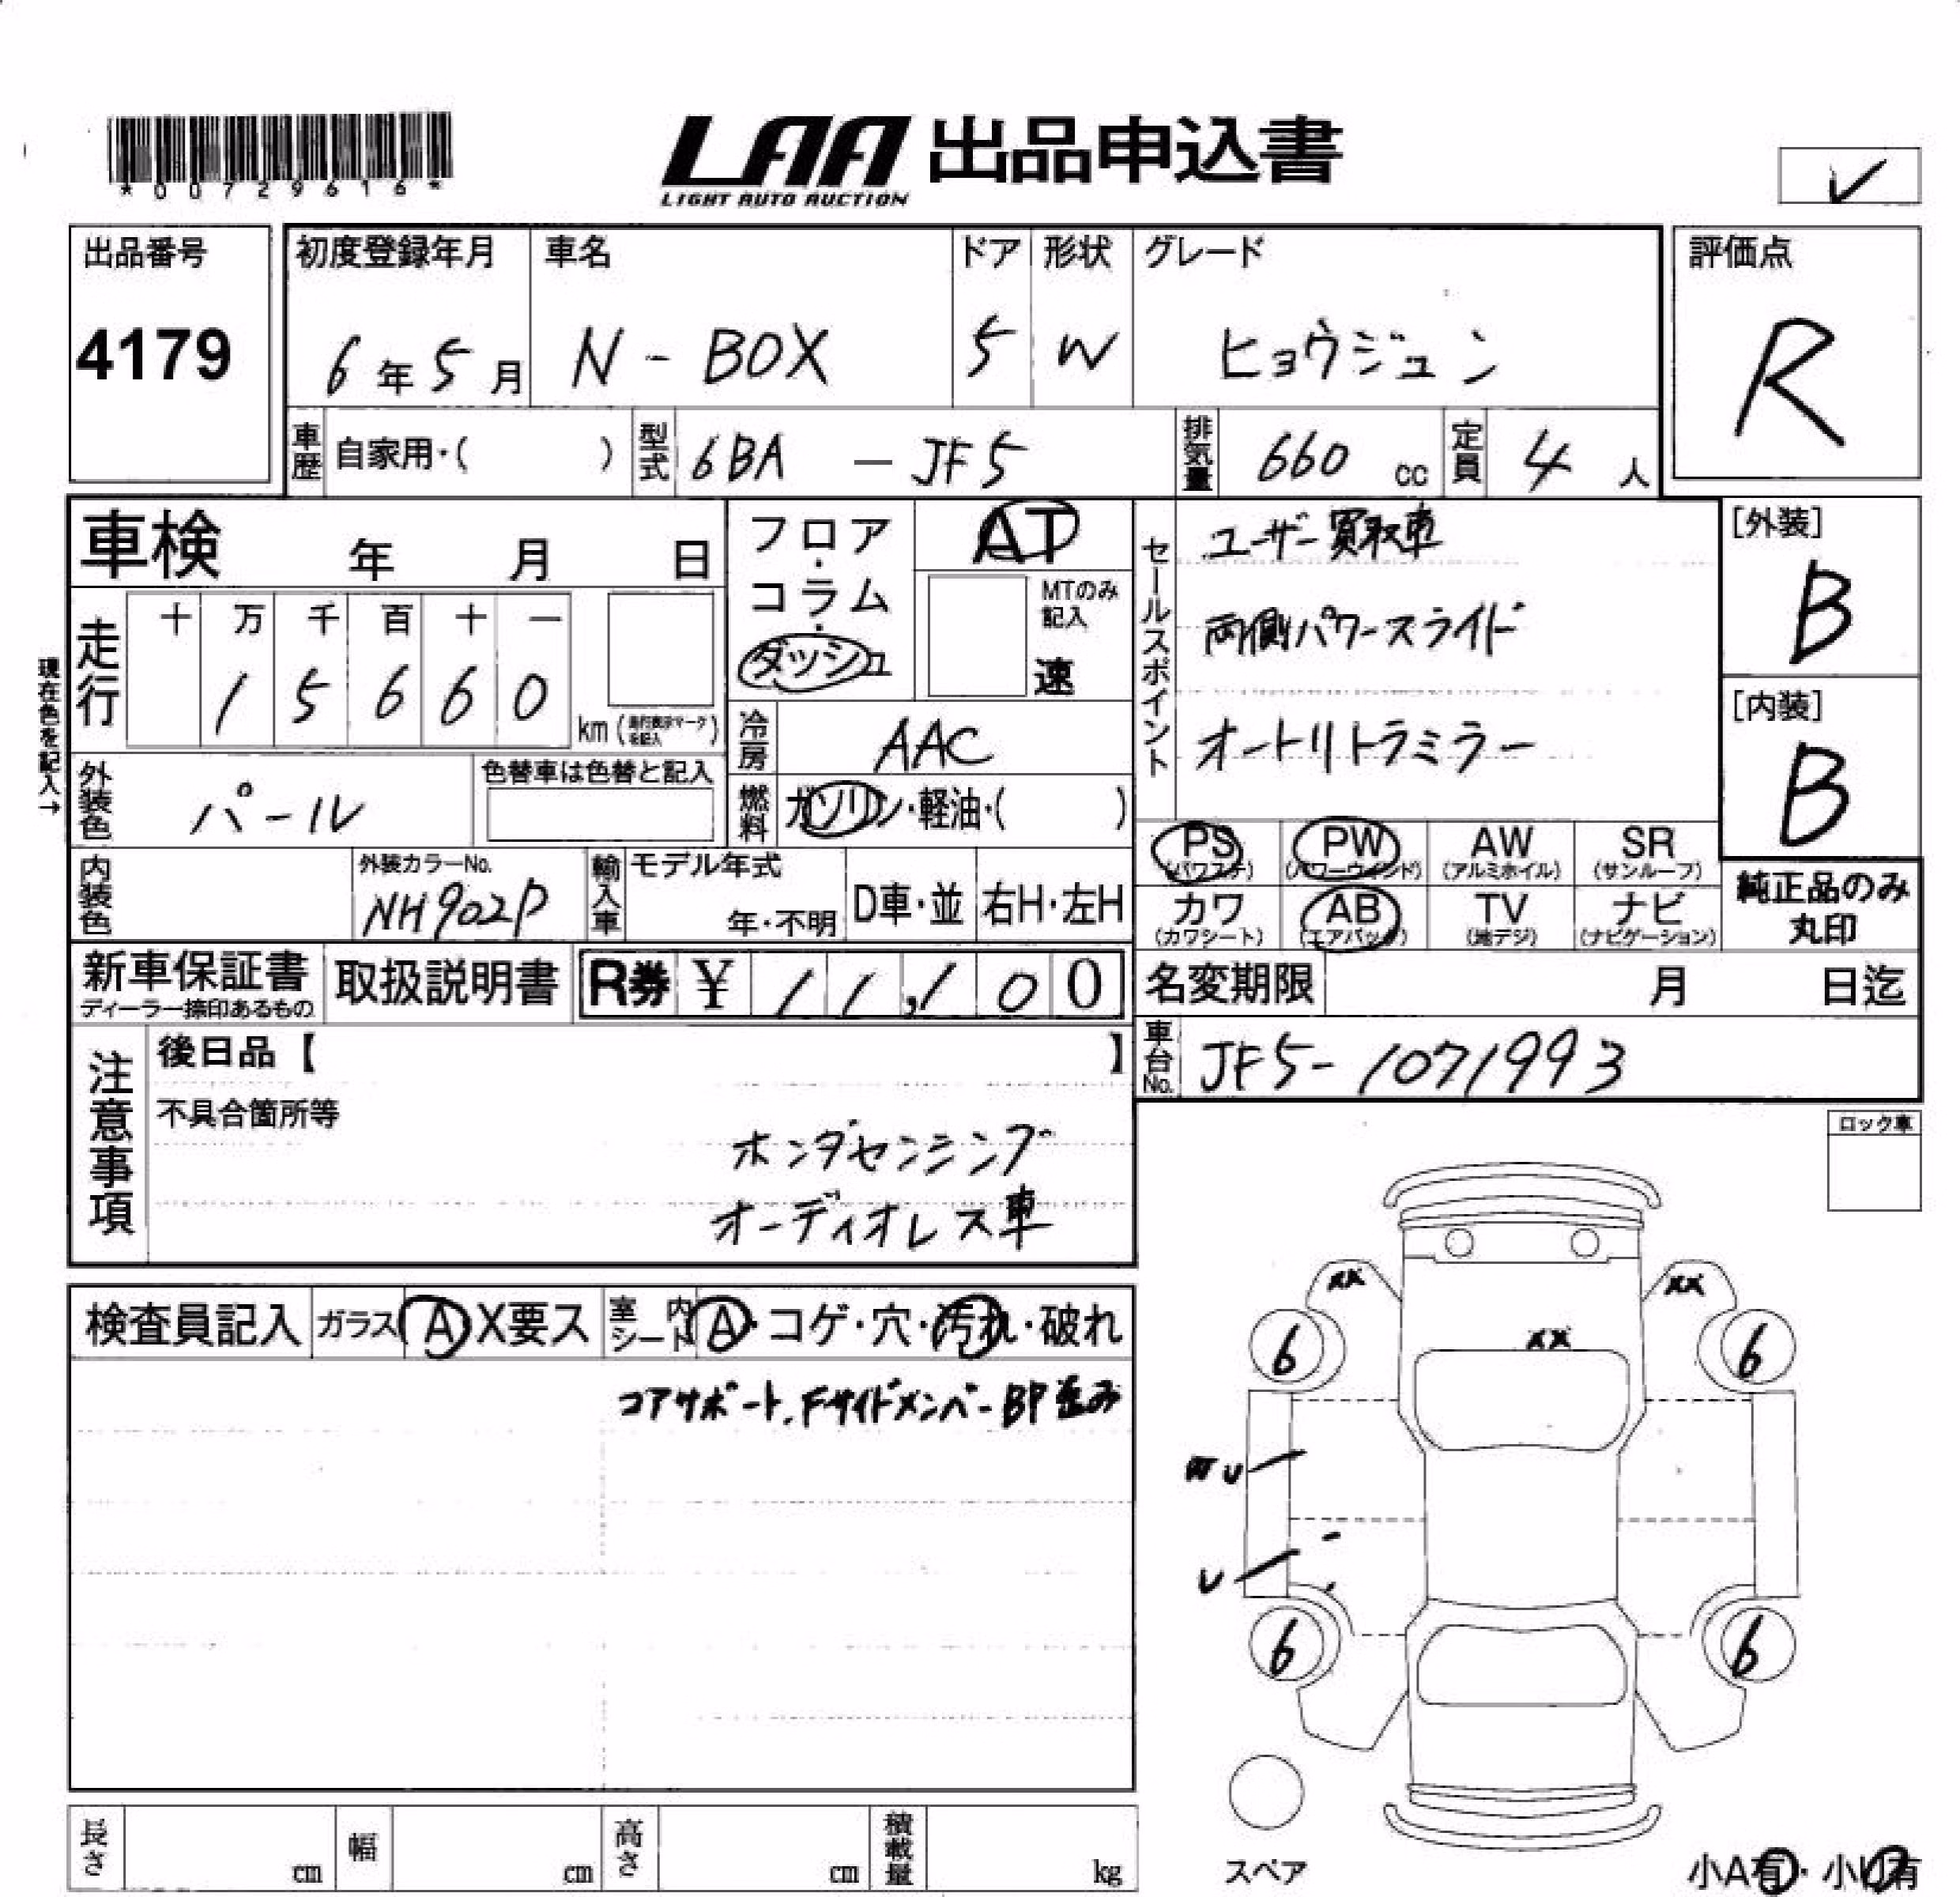 *00729616*
LAA 出品申込書
LIGHT AUTO AUCTION
✓
出品番号
4179
初度登録年月
6年5月
車名
N-BOX
ドア
5
形状
W
グレード
ヒョウジュン
評価点
R
車歴 自家用・( )
型式 6BA - JF5
排気量 660 cc
定員 4 人
車検 年 月 日
フロア・コラム・ダッシュ
AT
MTのみ記入
速
セールスポイント
ユーザー買取車
両側パワースライド
オートリトラミラー
[外装]
B
[内装]
B
現在色を記入→
走行
十 万 千 百 十 一
1 5 6 6 0
km
冷房 AAC
外装色 パール
色替車は色替と記入
燃料 ガソリン・軽油・( )
PS (パワステ)
PW (パワーウインド)
AW (アルミホイル)
SR (サンルーフ)
カワ (カワシート)
AB (エアバック)
TV (地デジ)
ナビ (ナビゲーション)
純正品のみ
丸印
内装色
外装カラーNo.
NH902P
輸入車
モデル年式
年・不明
D車・並
右H・左H
新車保証書
ディーラー捺印あるもの
取扱説明書
R券 ¥ 11,100
名変期限 月 日迄
車台No. JF5-1071993
注意事項
後日品【 】
不具合箇所等
ホンダセンシング
オーディオレス車
ロック車
検査員記入
ガラス A X要ス
室内シート A・コゲ・穴・汚れ・破れ
コアサポート、FサイドメンバーBP歪み
XX
XX
XX
6
6
U
U
6
6
スペア
長さ cm
幅 cm
高さ cm
積載量 kg
小A有・小U有